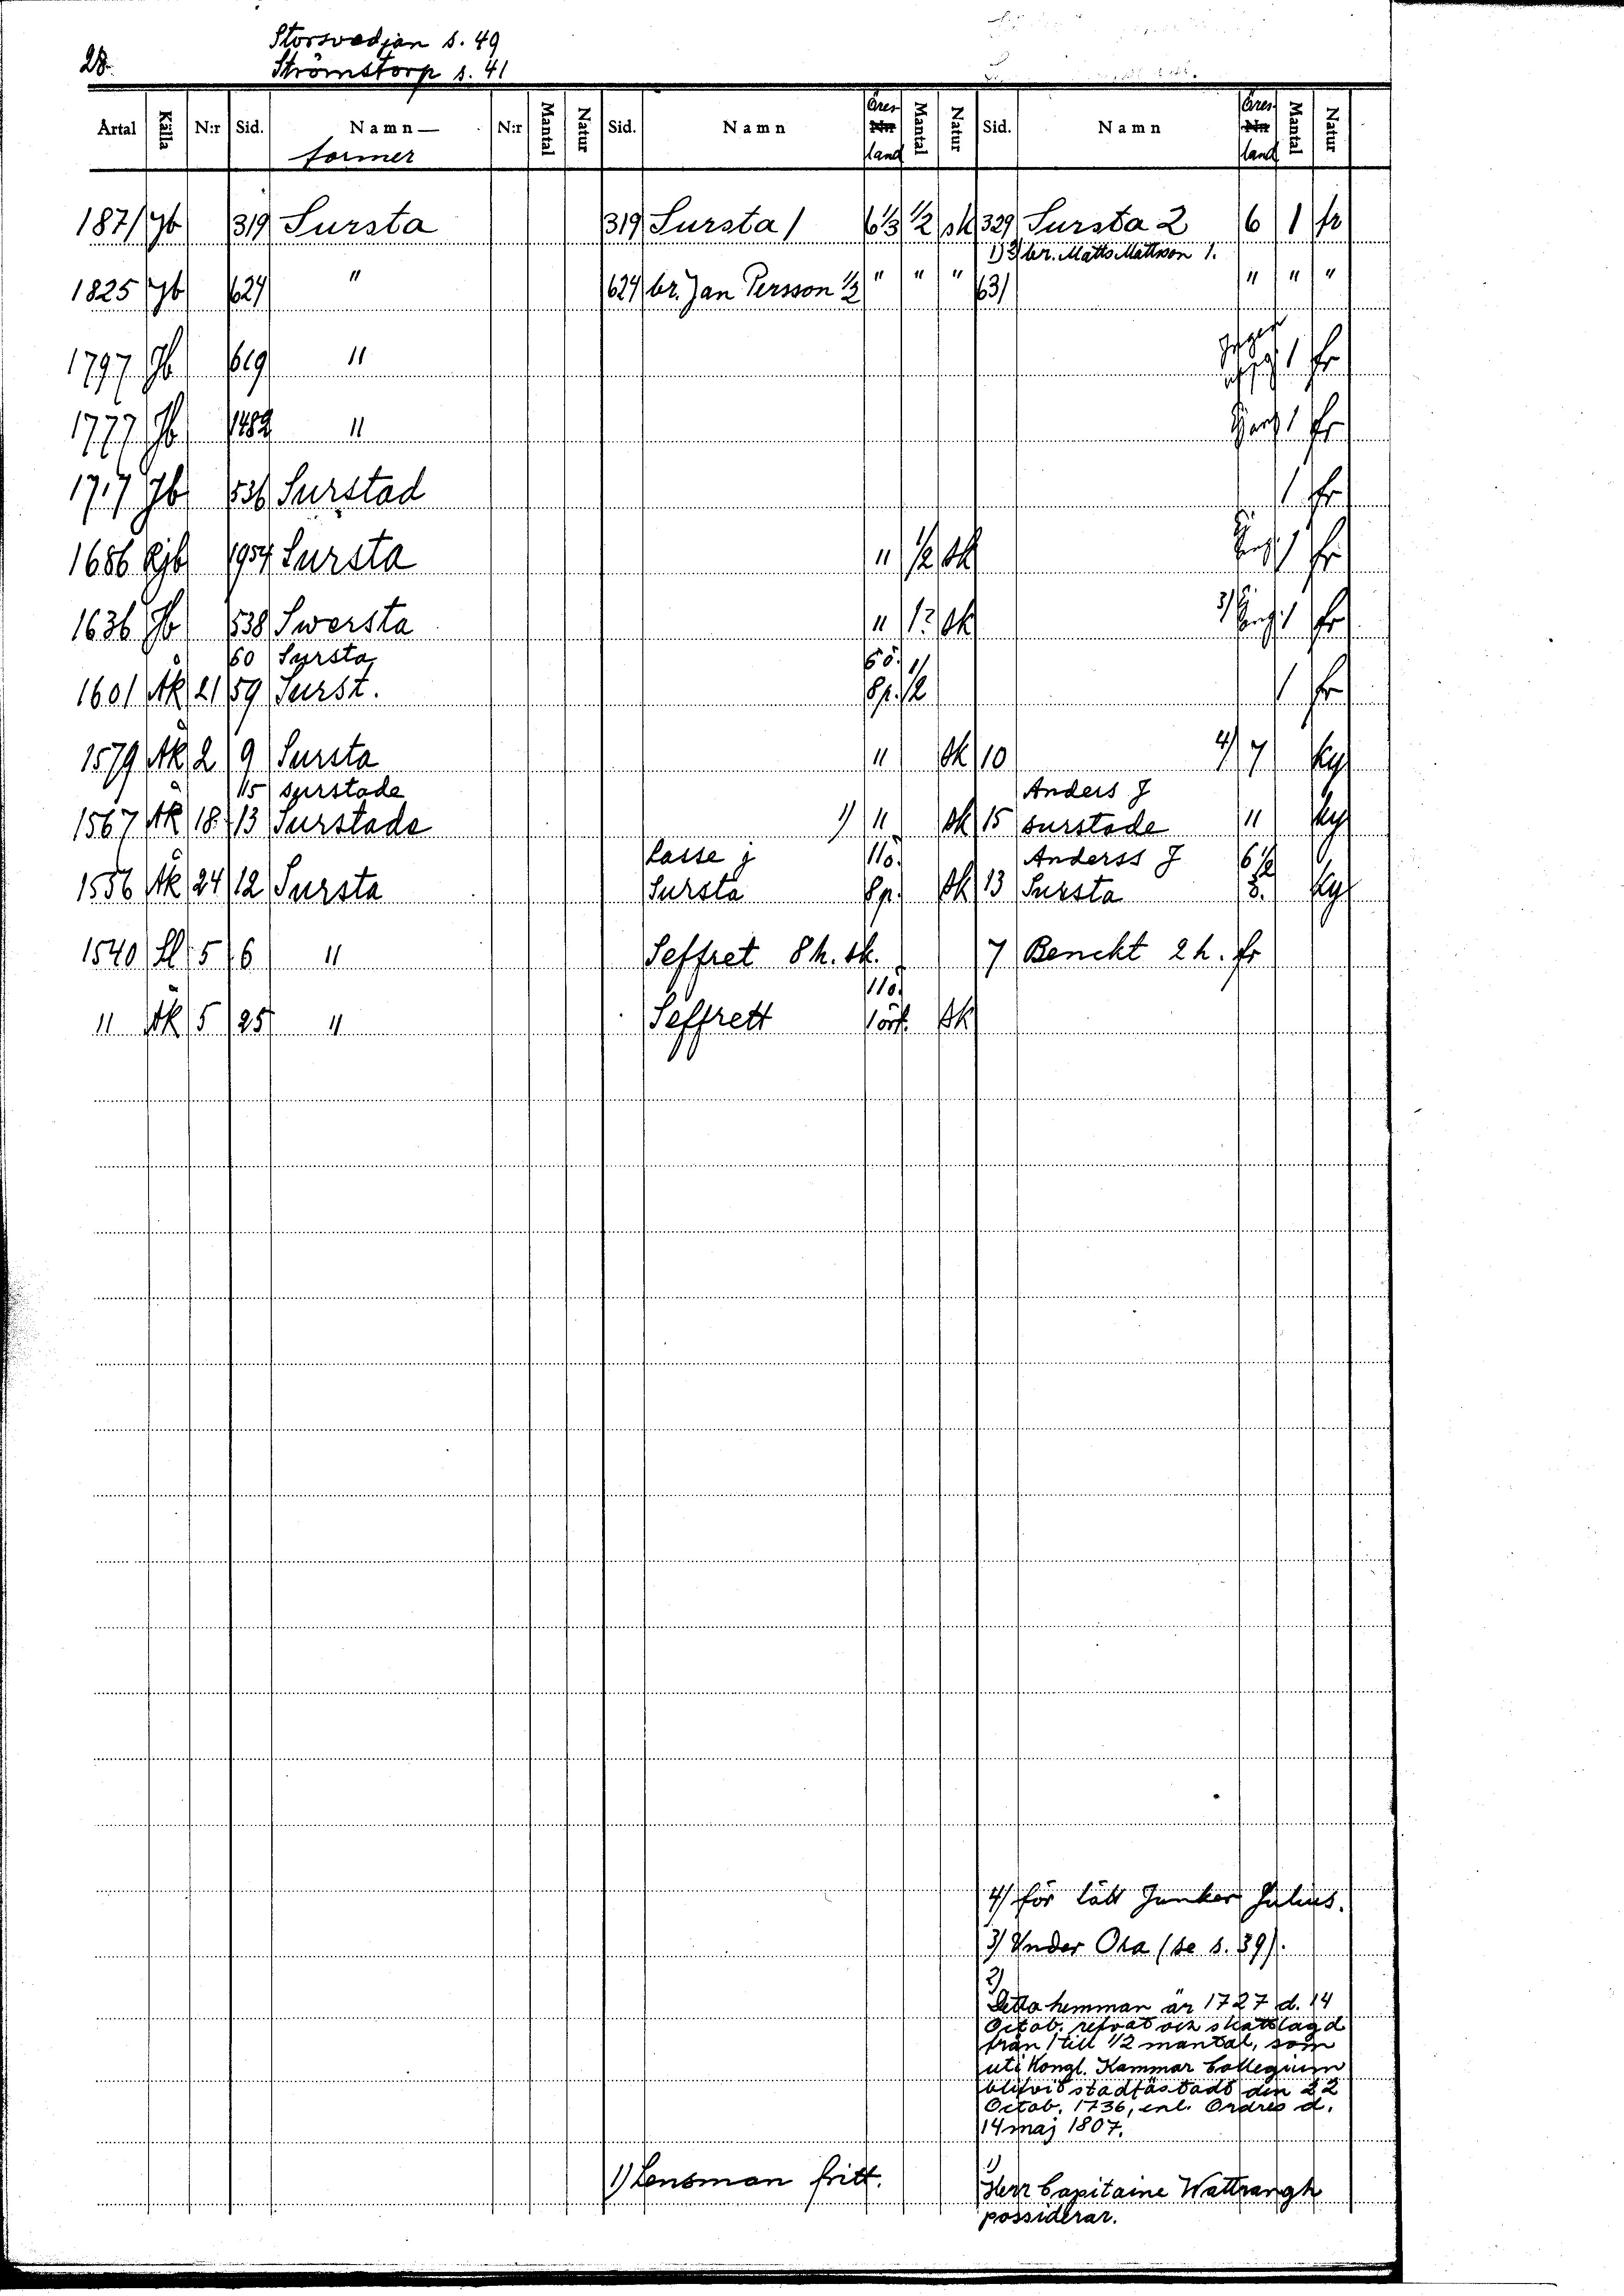 28.
Storsvedjan s. 49
Strömstorp s. 41
Årtal Källa N:r Sid. Namn— former N:r Mantal Natur Sid. Namn Öres land Mantal Natur Sid. Namn Öres land Mantal Natur
1871 Jb 319 Sursta 319 Sursta 1 6 1/3 1/2 sk 329 Sursta 2 6 1 fr
1) 2) br. Matts Mattsson 1.
1825 Jb 624 " 624 br. Jan Persson 1/2 " " " 631 " " "
1797 Jb 619 " 1 fr
1777 Jb 1482 " 1 fr
1717 Jb 536 Surstad 1 fr
1686 Rjb 1954 Sursta " 1/2 sk 1 fr
1636 Jb 538 Swersta " 1? sk 3) 1 fr
60 Sursta 6ö.
1601 Åk 21 59 Surst. 8p. 1/2 1 fr
1579 Åk 2 9 Sursta " sk 10 4) 7 ky
115 surstade Anders J
1567 Åk 18 13 Surstade 1) " sk 15 surstade " ky
Lasse j 11ö. Anderss J 6 1/2
1556 Åk 24 12 Sursta Sursta 8p. sk 13 Sursta ö. ky
1540 Sl 5 6 " Seffret 8 h. sk. 7 Benckt 2 h. fr
11ö.
" Åk 5 25 " Seffrett 1ört. sk
4) för lätt Junker Julius.
3) Under Ora (se s. 39).
2)
Detta hemman är 1727 d. 14
Octob. refvat och skattlagd
från 1 till 1/2 mantal, som
uti Kongl. Kammar Collegium
blifvit stadfästadt den 22
Octob. 1736, enl. Ordres d.
14 maj 1807.
1) Lensman fritt.
1)
Herr Capitaine Wattrangh
possiderar.